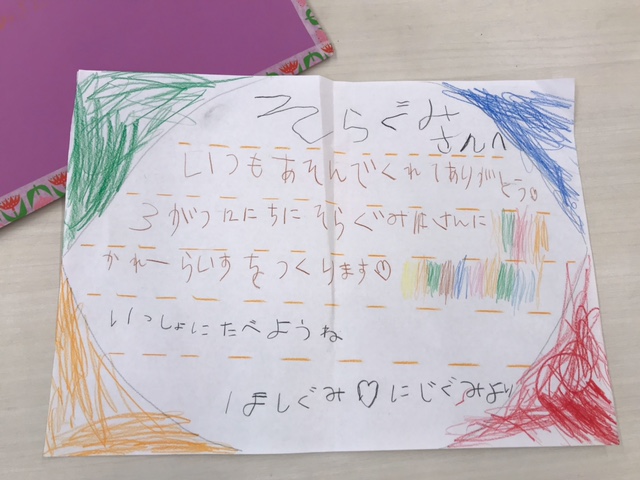 そらぐみ
さんへ
いつもあそんでくれてありがとう♡
3がつ12にちにそらぐみさんに
かれーらいすをつくります♡
いっしょにたべようね
ほしぐみ♡にじぐみより